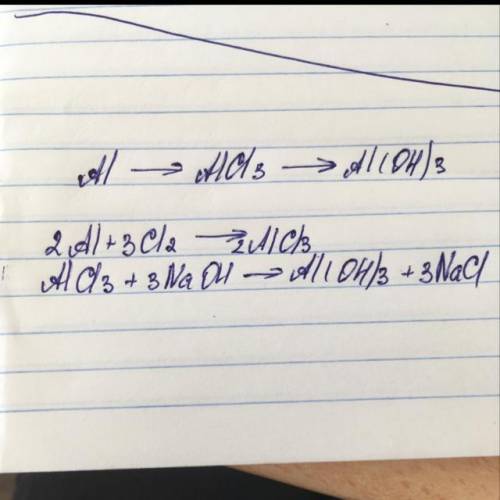 Al → AlCl3 → Al(OH)3
2Al+3Cl2 → 2AlCl3
AlCl3 + 3NaOH → Al(OH)3 + 3NaCl